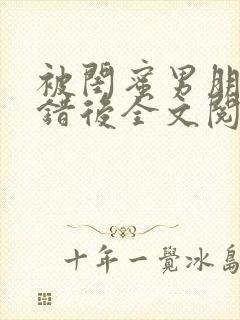 被閨蜜男朋
錯後全文閱
十年一覺冰島